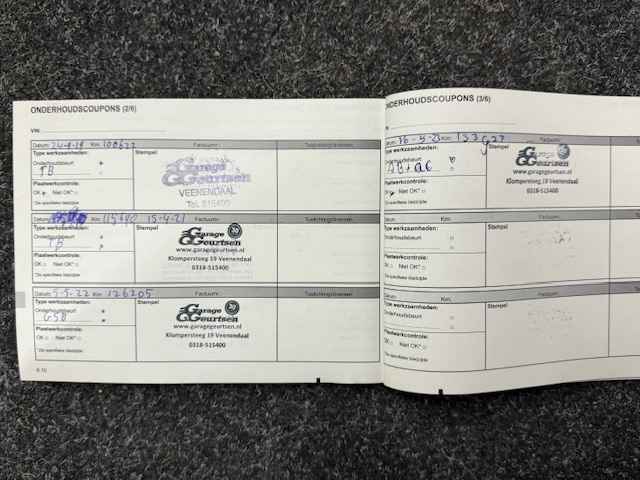 ONDERHOUDSCOUPONS (2/6)
VIN:
Datum: 24-9-19 Km: 100622 Factuurnr.: Toelichting/kenteken:
Type werkzaamheden: Stempel:
Onderhoudsbeurt
TB
Plaatwerkcontrole:
OK Niet OK*
*Zie specifieke bladzijde
Garage
Geurtsen
VEENENDAAL
Tel. 515400
Datum: Km: 115640 15-4-21 Factuurnr.:
Type werkzaamheden: Stempel:
Onderhoudsbeurt
TB
Plaatwerkcontrole:
OK Niet OK*
*Zie specifieke bladzijde
Garage
Geurtsen
www.garagegeurtsen.nl
Klompersteeg 19 Veenendaal
0318-515400
Datum: 5-5-22 Km: 126205 Factuurnr.:
Type werkzaamheden: Stempel:
Onderhoudsbeurt
GSB
Plaatwerkcontrole:
OK Niet OK*
*Zie specifieke bladzijde
Garage
Geurtsen
www.garagegeurtsen.nl
Klompersteeg 19 Veenendaal
0318-515400
ONDERHOUDSCOUPONS (3/6)
Datum: Km: Factuurnr.:
Type werkzaamheden: Stempel:
Onderhoudsbeurt
Plaatwerkcontrole:
OK Niet OK*
*Zie specifieke bladzijde
Garage
Geurtsen
www.garagegeurtsen.nl
Klompersteeg 19 Veenendaal
0318-515400
Datum: Km: Factuurnr.:
Type werkzaamheden: Stempel
Onderhoudsbeurt
Plaatwerkcontrole:
OK Niet OK*
*Zie specifieke bladzijde
Datum: Km: Factuurnr.:
Type werkzaamheden: Stempel
Onderhoudsbeurt
Plaatwerkcontrole:
OK Niet OK*
*Zie specifieke bladzijde